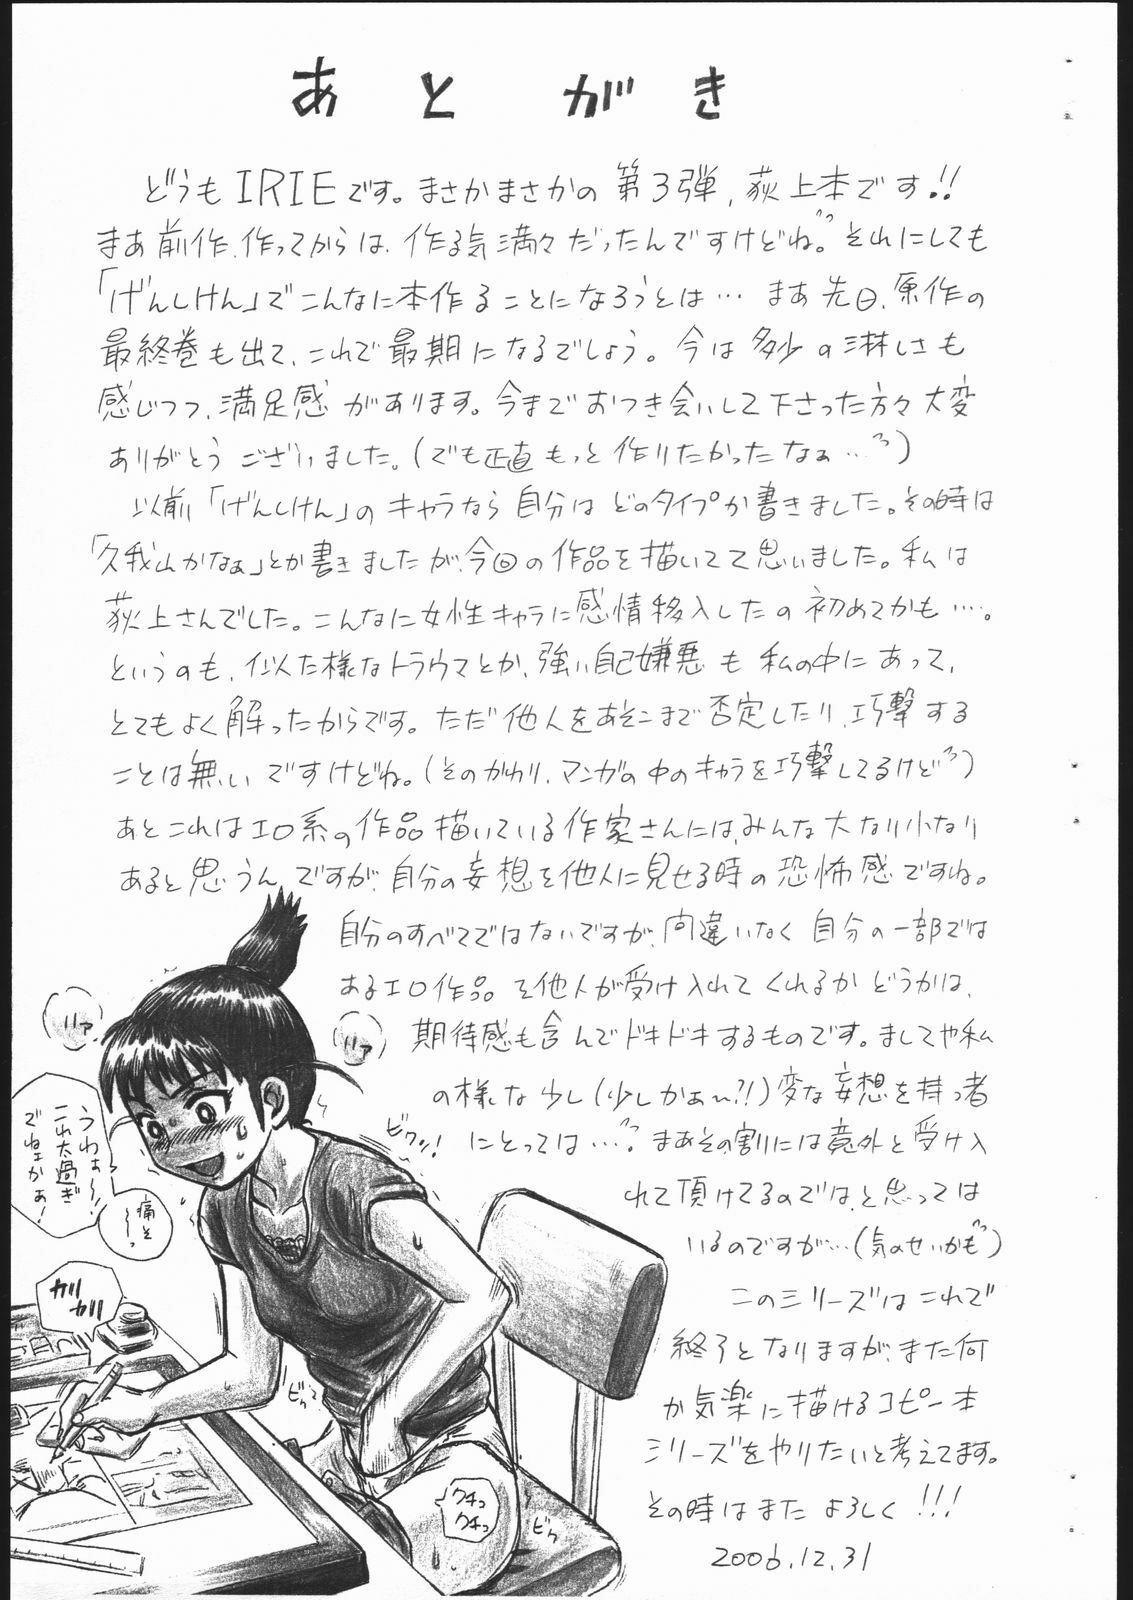 あとがき
どうもIRIEです。まさかまさかの第3弾、荻上本です!!
まあ前作、作ってからは、作る気満々だったんですけどね。それにしても
「げんしけん」でこんなに本作ることになろうとは… まあ先日、原作の
最終巻も出て、これで最期になるでしょう。今は多少の淋しさも
感じつつ、満足感があります。今までおつき会いして下さった方々大変
ありがとうございました。(でも正直もっと作りたかったなぁ…)
以前「げんしけん」のキャラなら自分はどのタイプか書きました。その時は
「久我山かなぁ」とか書きましたが、今回の作品を描いてて思いました。私は
荻上さんでした。こんなに女性キャラに感情移入したの初めてかも…。
というのも、似た様なトラウマとか、強い自己嫌悪も私の中にあって、
とてもよく解ったからです。ただ他人をあそこまで否定したり、攻撃する
ことは無いですけどね。(そのかわり、マンガの中のキャラを攻撃してるけど)
あとこれはエロ系の作品描いている作家さんには、みんな大なり小なり
あると思うんですが、自分の妄想を他人に見せる時の恐怖感ですね。
自分のすべてではないですが、間違いなく自分の一部では
あるエロ作品を他人が受け入れてくれるかどうかは、
期待感も含んでドキドキするものです。ましてや私
の様な少し(少しかぁ〜?!)変な妄想を持つ者
にとっては…。まあその割には意外と受け入
れて頂けてるのではと思っては
いるのですが…(気のせいかも)
このシリーズはこれで
終了となりますが、また何
か気楽に描けるコピー本
シリーズをやりたいと考えてます。
その時はまたよろしく!!!
2006.12.31
ハァ
ハァ
うわぁ〜!
これ太過ぎ
でねェかぁ!
痛そ〜っ
カリ
カリ
ビクッ!
ビクッ
クチュっ
クチュっ
ビク